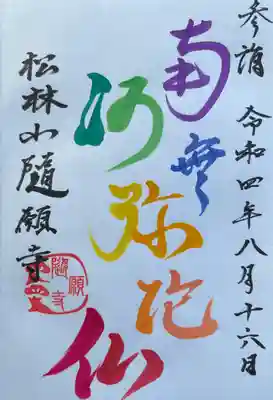 参詣 令和四年八月十六日
南無
阿弥陀
仏
松林山隨願寺